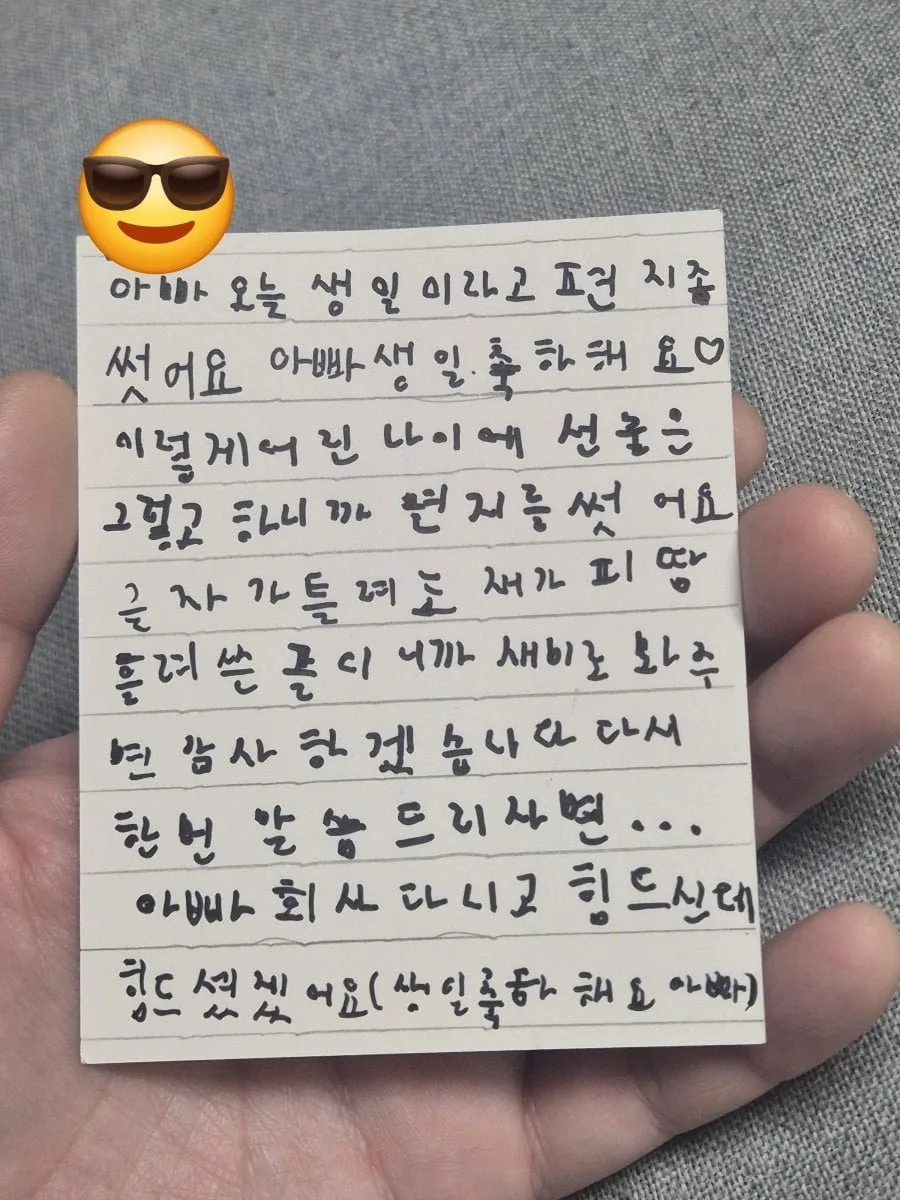 아빠 오늘 생일 이라고 편지좀
썻어요 아빠생일.축하해요♡
이렇게어린나이에 선물은
그렇고 하니까 편지를 썻어요
글자가틀려도 재가 피땀
흘려 쓴 글이니까 새비로 봐주
면 감사하겠습니다 다시
한번 말씀드리사면...
아빠 회사다시고 힘드신데
힘드셨겠어요(생일축하해요 아빠)